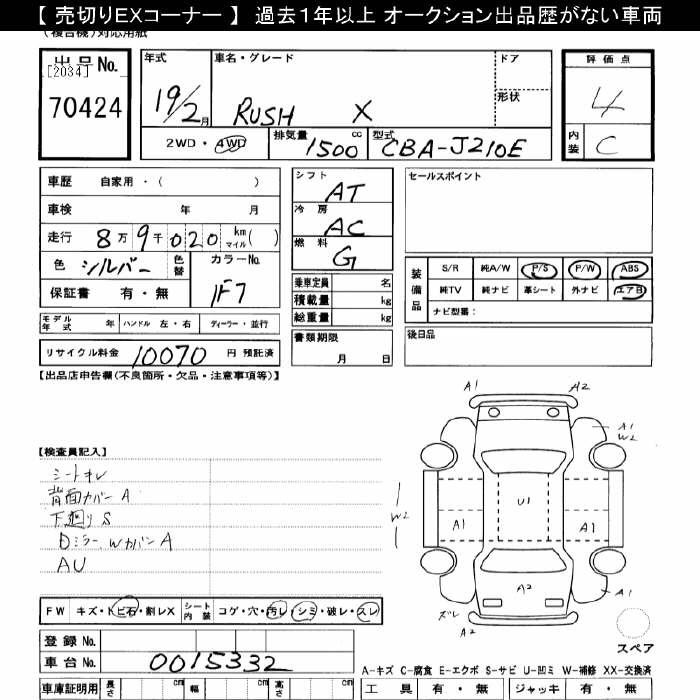 【 売切りEXコーナー 】 過去1年以上 オークション出品歴がない車両
(複合機)対応用紙
出品 No.
[2034]
70424
年式
19/2月
車名・グレード
RUSH X
ドア
形状
2WD・4WD
排気量
1500 cc
型式
CBA-J210E
評価点
4
内装
C
車歴 自家用・( )
車検 年 月
走行 8万9千020 km マイル( )
色 シルバー 色替
カラーNo.
1F7
保証書 有・無
シフト
AT
冷房
AC
燃料
G
乗車定員 名
積載量 kg
総重量 kg
書類期限
月 日
セールスポイント
装備品
S/R 純A/W P/S P/W ABS
純TV 純ナビ 革シート 外ナビ エアB
ナビ型番:
後日品
モデル年式 年 ハンドル 左・右 ディーラー・並行
リサイクル料金 10070 円 預託済
【出品店申告欄(不良箇所・欠品・注意事項等)】
【検査員記入】
シートキレ
背面カバーA
下廻りS
Dミラー、WカバンA
AU
A1
A2
A1
W2
U1
W2
A1
A1
A2
ズレ
A2
A1
スペア
FW キズ・トビ石・割レX シート内装 コゲ・穴・汚レ・シミ・破レ・スレ
登録 No.
車台 No. 0015332
A-キズ C-腐食 E-エクボ S-サビ U-凹ミ W-補修 XX-交換済
車庫証明用 長さ cm 幅 cm 高さ cm
工具 有・無 ジャッキ 有・無